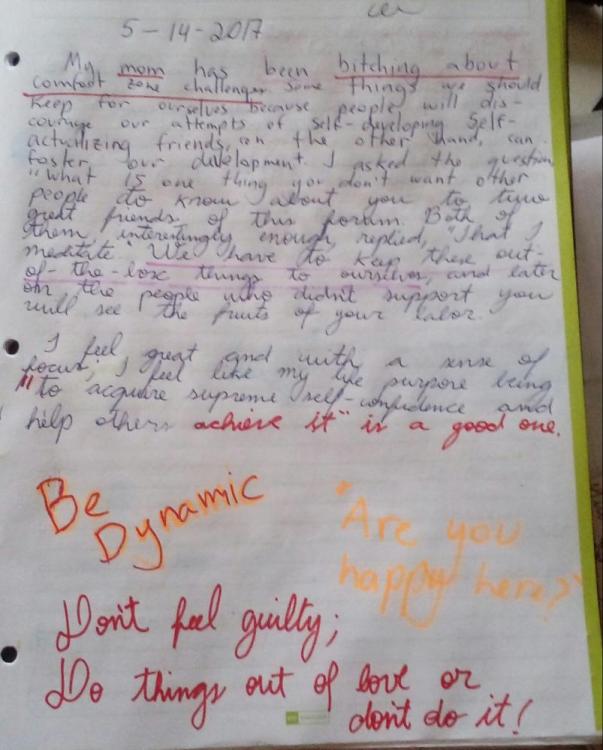 5-14-2017
My mom has been bitching about
comfort zone challenges some things we should
keep for ourselves because people will dis-
courage our attempts of self-developing Self-
actuilizing friends, on the other hand, can
foster our development. I asked the question
"What is one thing you don't want other
people to know about you to two
great friends of this forum. Both of
them, interestingly enough, replied, "That I
meditate" We have to keep these out-
of-the-box things to ourselves, and later
on the people who didn't support you
will see the fruits of your labor.
I feel great and with a sense of
focus; I feel like my life purpose being
"to acquire supreme self-confidence and
help others achieve it" is a good one.
Be
Dynamic
"Are you
happy here?"
Don't feel guilty;
Do things out of love or
don't do it!